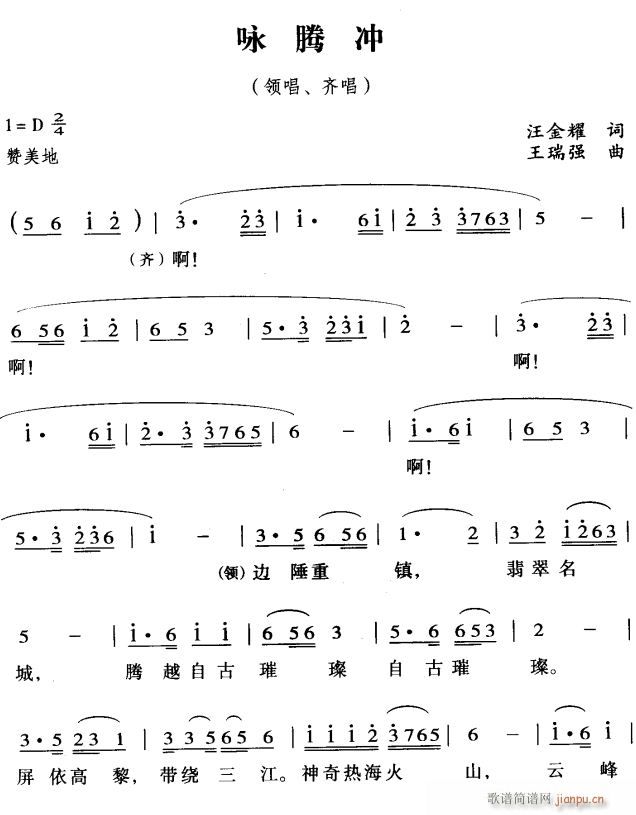 咏腾冲
(领唱、齐唱)
1=D 2/4
汪金耀 词
赞美地
王瑞强 曲
(5 6 i 2) | 3· 23 | i· 6i | 2 3 3763 | 5 - |
(齐)啊!
6 56 i 2 | 6 5 3 | 5·3 23i | 2 - | 3· 23 |
啊! 啊!
i· 6i | 2·3 3765 | 6 - | i·6 i | 6 5 3 |
啊!
5·3 236 | i - | 3·5 6 56 | 1· 2 | 3 2 i263 |
(领)边陲重镇, 翡翠名
5 - | i·6 i i | 6 56 3 | 5·6 653 | 2 - |
城, 腾越自古璀璨自古璀璨。
3·5 23 1 | 3 3 5 6 5 | i i i 2 3765 | 6 - | i·6 i |
屏依高黎,带绕三江。神奇热海火山,云峰
歌谱简谱网 jianpu.cn